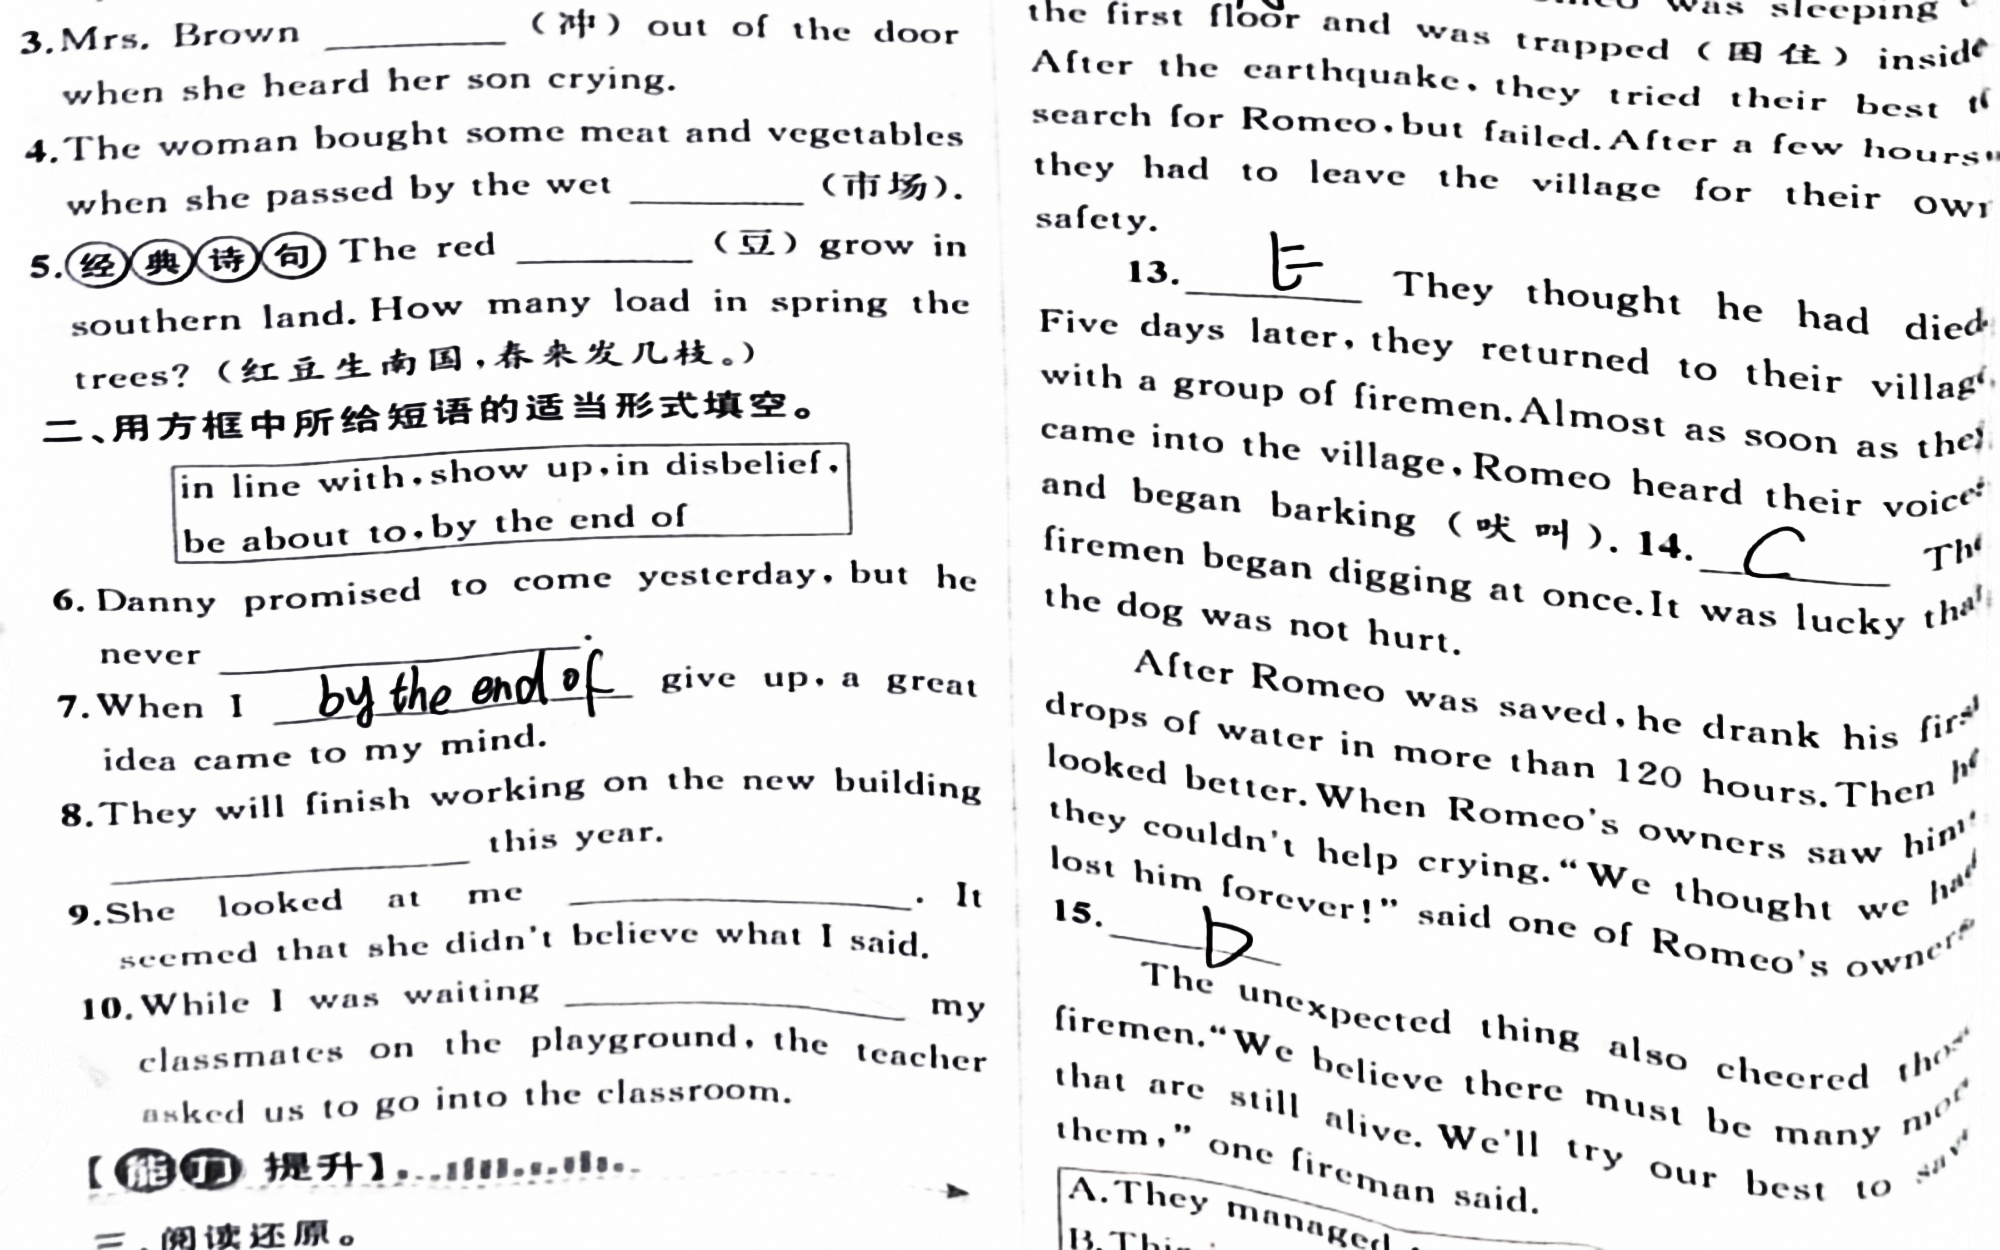 3. Mrs. Brown ________ (冲) out of the door
when she heard her son crying.
4. The woman bought some meat and vegetables
when she passed by the wet ________ (市场).
5. 经典诗句 The red ________ (豆) grow in
southern land. How many load in spring the
trees? (红豆生南国,春来发几枝。)
二、用方框中所给短语的适当形式填空。
in line with, show up, in disbelief,
be about to, by the end of
6. Danny promised to come yesterday, but he
never ________.
7. When I by the end of give up, a great
idea came to my mind.
8. They will finish working on the new building
________ this year.
9. She looked at me ________. It
seemed that she didn't believe what I said.
10. While I was waiting ________ my
classmates on the playground, the teacher
asked us to go into the classroom.
【能力 提升】
三、阅读还原。
was sleeping
the first floor and was trapped (困住) inside
After the earthquake, they tried their best
search for Romeo, but failed. After a few hours
they had to leave the village for their own
safety.
13. E They thought he had died
Five days later, they returned to their
with a group of firemen. Almost as soon as
came into the village, Romeo heard their
and began barking (吠叫). 14. C
firemen began digging at once. It was lucky
the dog was not hurt.
After Romeo was saved, he drank his
drops of water in more than 120 hours. Then
looked better. When Romeo's owners saw him
they couldn't help crying. "We thought we had
lost him forever!" said one of Romeo's owners
15. D
The unexpected thing also cheered
firemen. "We believe there must be many
that are still alive. We'll try our best to
them," one fireman said.
A. They managed
B.